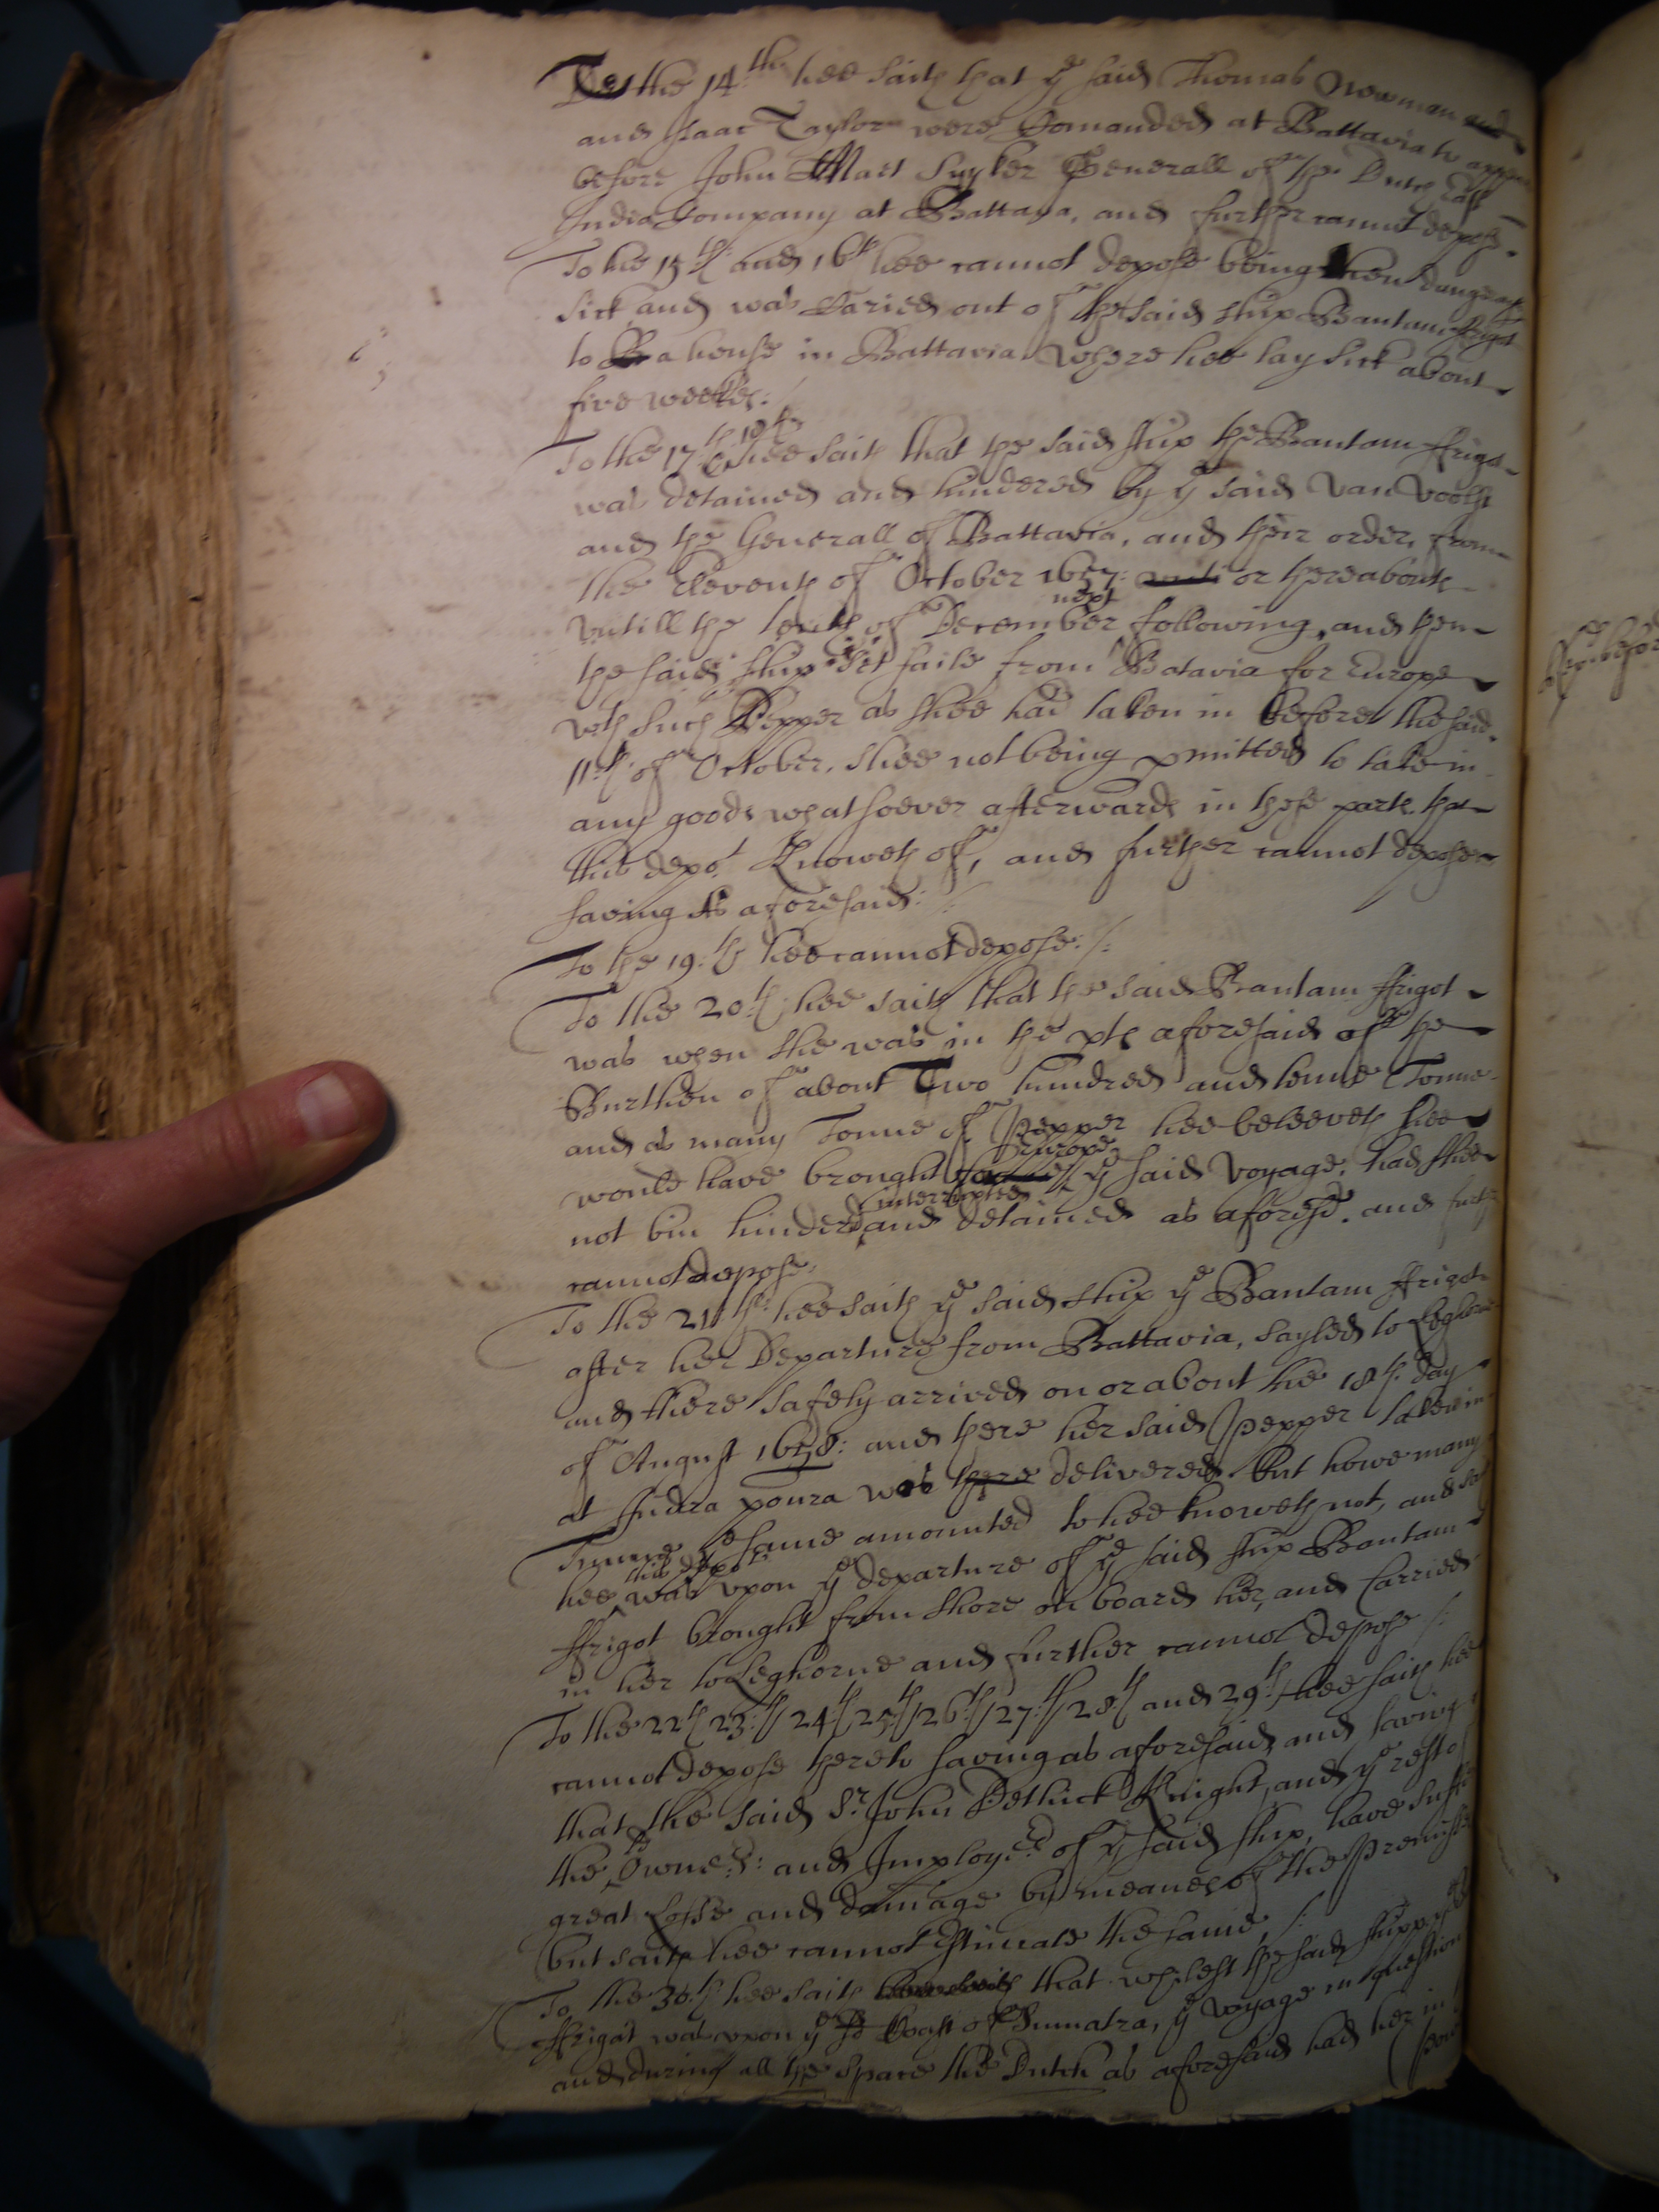 To the 14:th hee saith that ye said Thomas Newman and
and Isaac Taylor were Comanded at Battavia to appear
before John Maet Suyker Generall of the Dutch East
India Company at Battava, and further cannot depose.
To the 15th and 16th hee cannot depose being then
sick and was Caried out of the said ship Bantam ffrigot
to a house in Battavia where hee lay sick about
five weekes:/
To the 17th 18th hee saith that the said ship the Bantam ffrigot
was detained and hindered by ye said Van Voorst
and the Generall of Battavia, and their order, from
the Eleventh of October 1657: or thereabouts
untill the tenth of December next following, and then
the said ship set saile from Batavia for Europe
wth such Pepper as shee had taken in before the said
11th of October, shee not being pmitted to take in
any goods whatsoever afterwards in those parts that
this depot Knoweth of, and further cannot depose
saving As aforesaid:/
To the 19:th hee cannot depose:/:
To the 20:th hee saith that the said Bantam ffrigot
was when she was in the pts aforesaid off the
Burthen of about Two hundred and tenne Tonne
and as many Tonne of Pepper hee beleeveth shee
would have brought for Europe ye said voyage, had shee
not bin hindered interrupted and detained as aforesd. and furthr
cannot depose.
To the 21th: hee saith ye said ship ye Bantam ffrigot
after her Departure from Battavia, sayled to Leghorne
and there safely arrived on or about the 18th: day
of August 1658: and there her said Pepper taken in
at Indra poura was there delivered but howe many
Tunne ye same amounted to hee knoweth not, and saith
hee this depot was upon ye departure of ye said ship Bantam
ffrigot brought from shore on board her, and Carried
in her to Leghorne and further cannot depose /:
To the 22th 23:th 24th 25:th 26:th 27:th 28th and 29:th hee saith hee
cannot depose thereto saving as aforesaid, and saving
that the said Sr. John Dethick Knight, and ye rest of
the Owners: and Imployers of ye said ship, have suffered
great Losse and damage by meanes of the Premisses
but saith hee cannot Estimate the same,/:
To the 30:th hee saith that whilest the said shipp ye
ffrigat was upon ye Coast of Sumatra, ye voyage in question
and during all the space the Dutch as aforesaid had her in